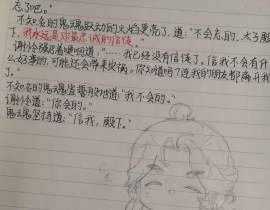 忘了吧。”
不知名的鬼魂跃动的火焰更亮了,道:“不会忘的,太子殿
下,我永远是你最忠诚的信徒。”
谢怜强忍着哽咽道:“……我已经没有信徒了。信我不会有什
么好事的,可能还会带来灾祸。你知道吗?连我的朋友都离开我
了。”
不知名的鬼魂宣誓般地道:“我不会的。”
谢怜道:“你会的。”
鬼魂坚持道:“信我,殿下。”